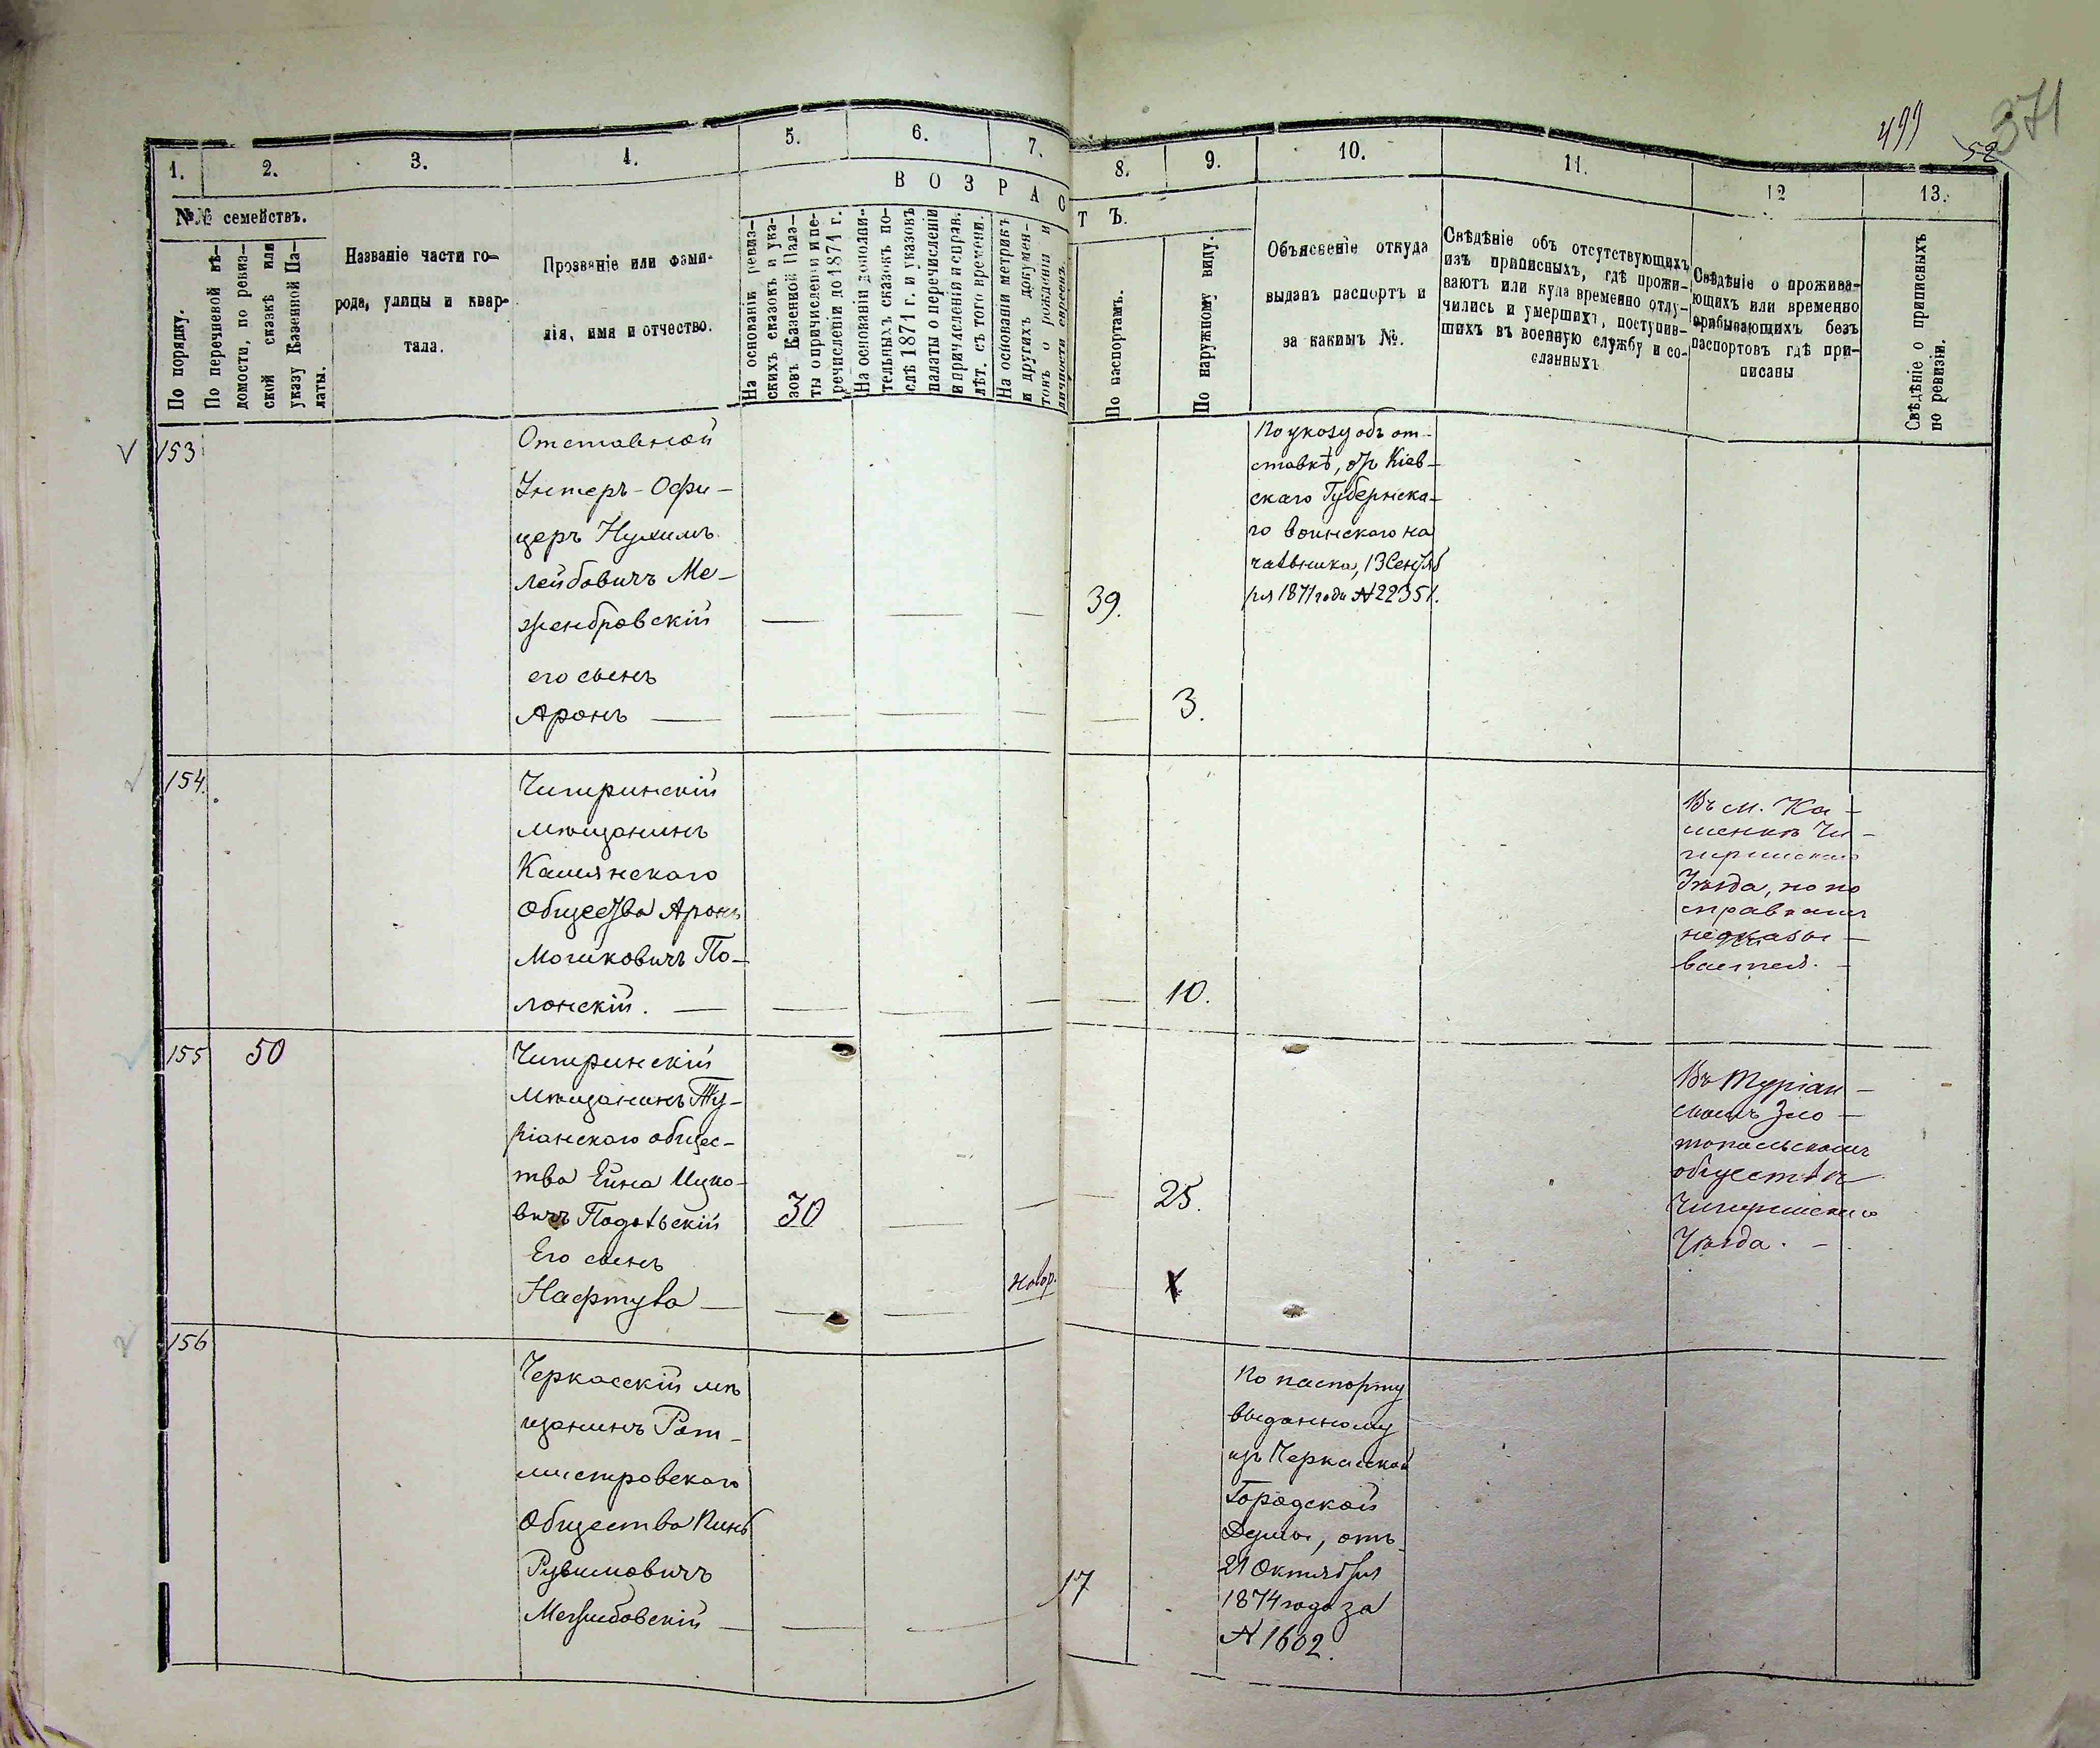 499
371
52
1.
2.
3.
4.
5.
6.
7.
8.
9.
10.
11.
12
13.
ВОЗРАСТЪ.
№№ семействъ.
По порядку.
По перечневой вѣ-
домости, по ревиз-
ской сказкѣ или
указу Казенной Па-
латы.
Названіе части го-
рода, улицы и квар-
тала.
Прозваніе или фами-
лія, имя и отчество.
На основаніи ревиз-
скихъ сказокъ и ука-
зовъ Казенной Пала-
ты о причисленіи и пе-
речисленіи до 1871 г.
На основаніи дополни-
тельныхъ сказокъ по-
слѣ 1871 г. и указовъ
палаты о перечисленіи
и причисленіи и справ.
лѣт. съ того времени.
На основаніи метрикъ
и другихъ докумен-
товъ о рожденіи и
личности евреевъ.
По паспортамъ.
По наружному виду.
Объясненіе откуда
выданъ паспортъ и
за какимъ №.
Свѣдѣніе объ отсутствующихъ
изъ приписныхъ, гдѣ прожи-
ваютъ или куда временно отлу-
чились и умершихъ, поступив-
шихъ въ военную службу и со-
сланныхъ
Свѣдѣніе о прожива-
ющихъ или временно
прибывающихъ безъ
паспортовъ гдѣ при-
писаны
Свѣдѣніе о приписныхъ
по ревизіи.
153
Отставной
Унтеръ-Офи-
церъ Нухимъ
Лейбовичъ Ме-
жембровскій
39.
его сынъ
Аронъ
3.
По указу объ от-
ставкѣ, отъ Кіев-
скаго Губернска-
го воинскаго на
чальника, 13 Сентяб
ря 1871 года № 22351.
154.
Чигиринскій
мѣщанинъ
Камянскаго
Общества Аронъ
Мошковичъ По-
лонскій.
10.
Въ м. Ка-
менкѣ Чи-
гиринскаго
Уѣзда, но по
справкамъ
неоказы-
вается.
155
50
Чигиринскій
мѣщанинъ Ту-
ріанскаго общес-
тва Ейна Ицко-
вичъ Подольскій
30
25.
Его сынъ
Нафтула
новор.
Въ Туріан-
скомъ Зла-
топольскомъ
обществѣ
Чигиринскаго
Уѣзда.
156
Черкасскій мѣ
щанинъ Рот-
мистровскаго
Общества Пинь
Рувимовичъ
Межибовскій
17
По паспорту
выданному
изъ Черкасской
Городской
Думы, отъ
21 Октября
1874 года за
№ 1602.